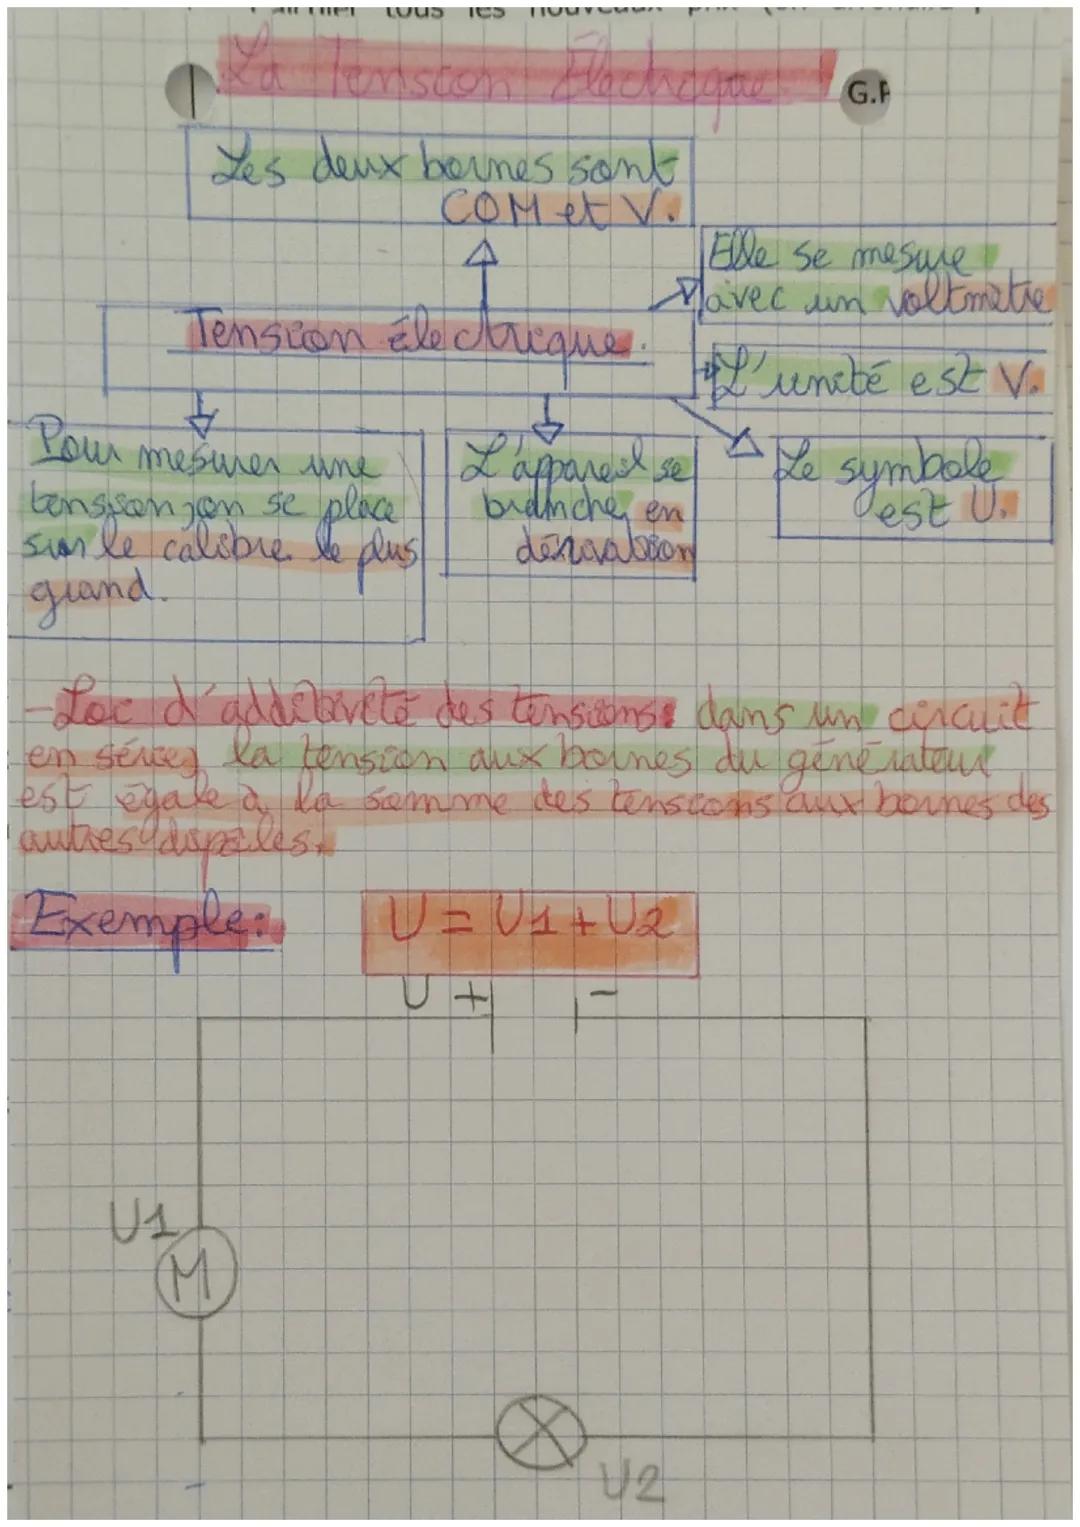 La Tension Électrique
G.P
Les deux bornes sont
COM et V.
Elle se mesure
avec un voltmètre
Tension électrique.
L'unité est V.
Pour mesurer une
tension, on se place
sur le calibre le plus
grand.
L'appareil se
branche en
dérivation
Le symbole
est U.
-Loi d'additivité des tensions: dans un circuit
en série, la tension aux bornes du générateur
est égale à la somme des tensions aux bornes des
autres dipôles.
Exemple:
U = U1 + U2
U + -
U1
M
U2